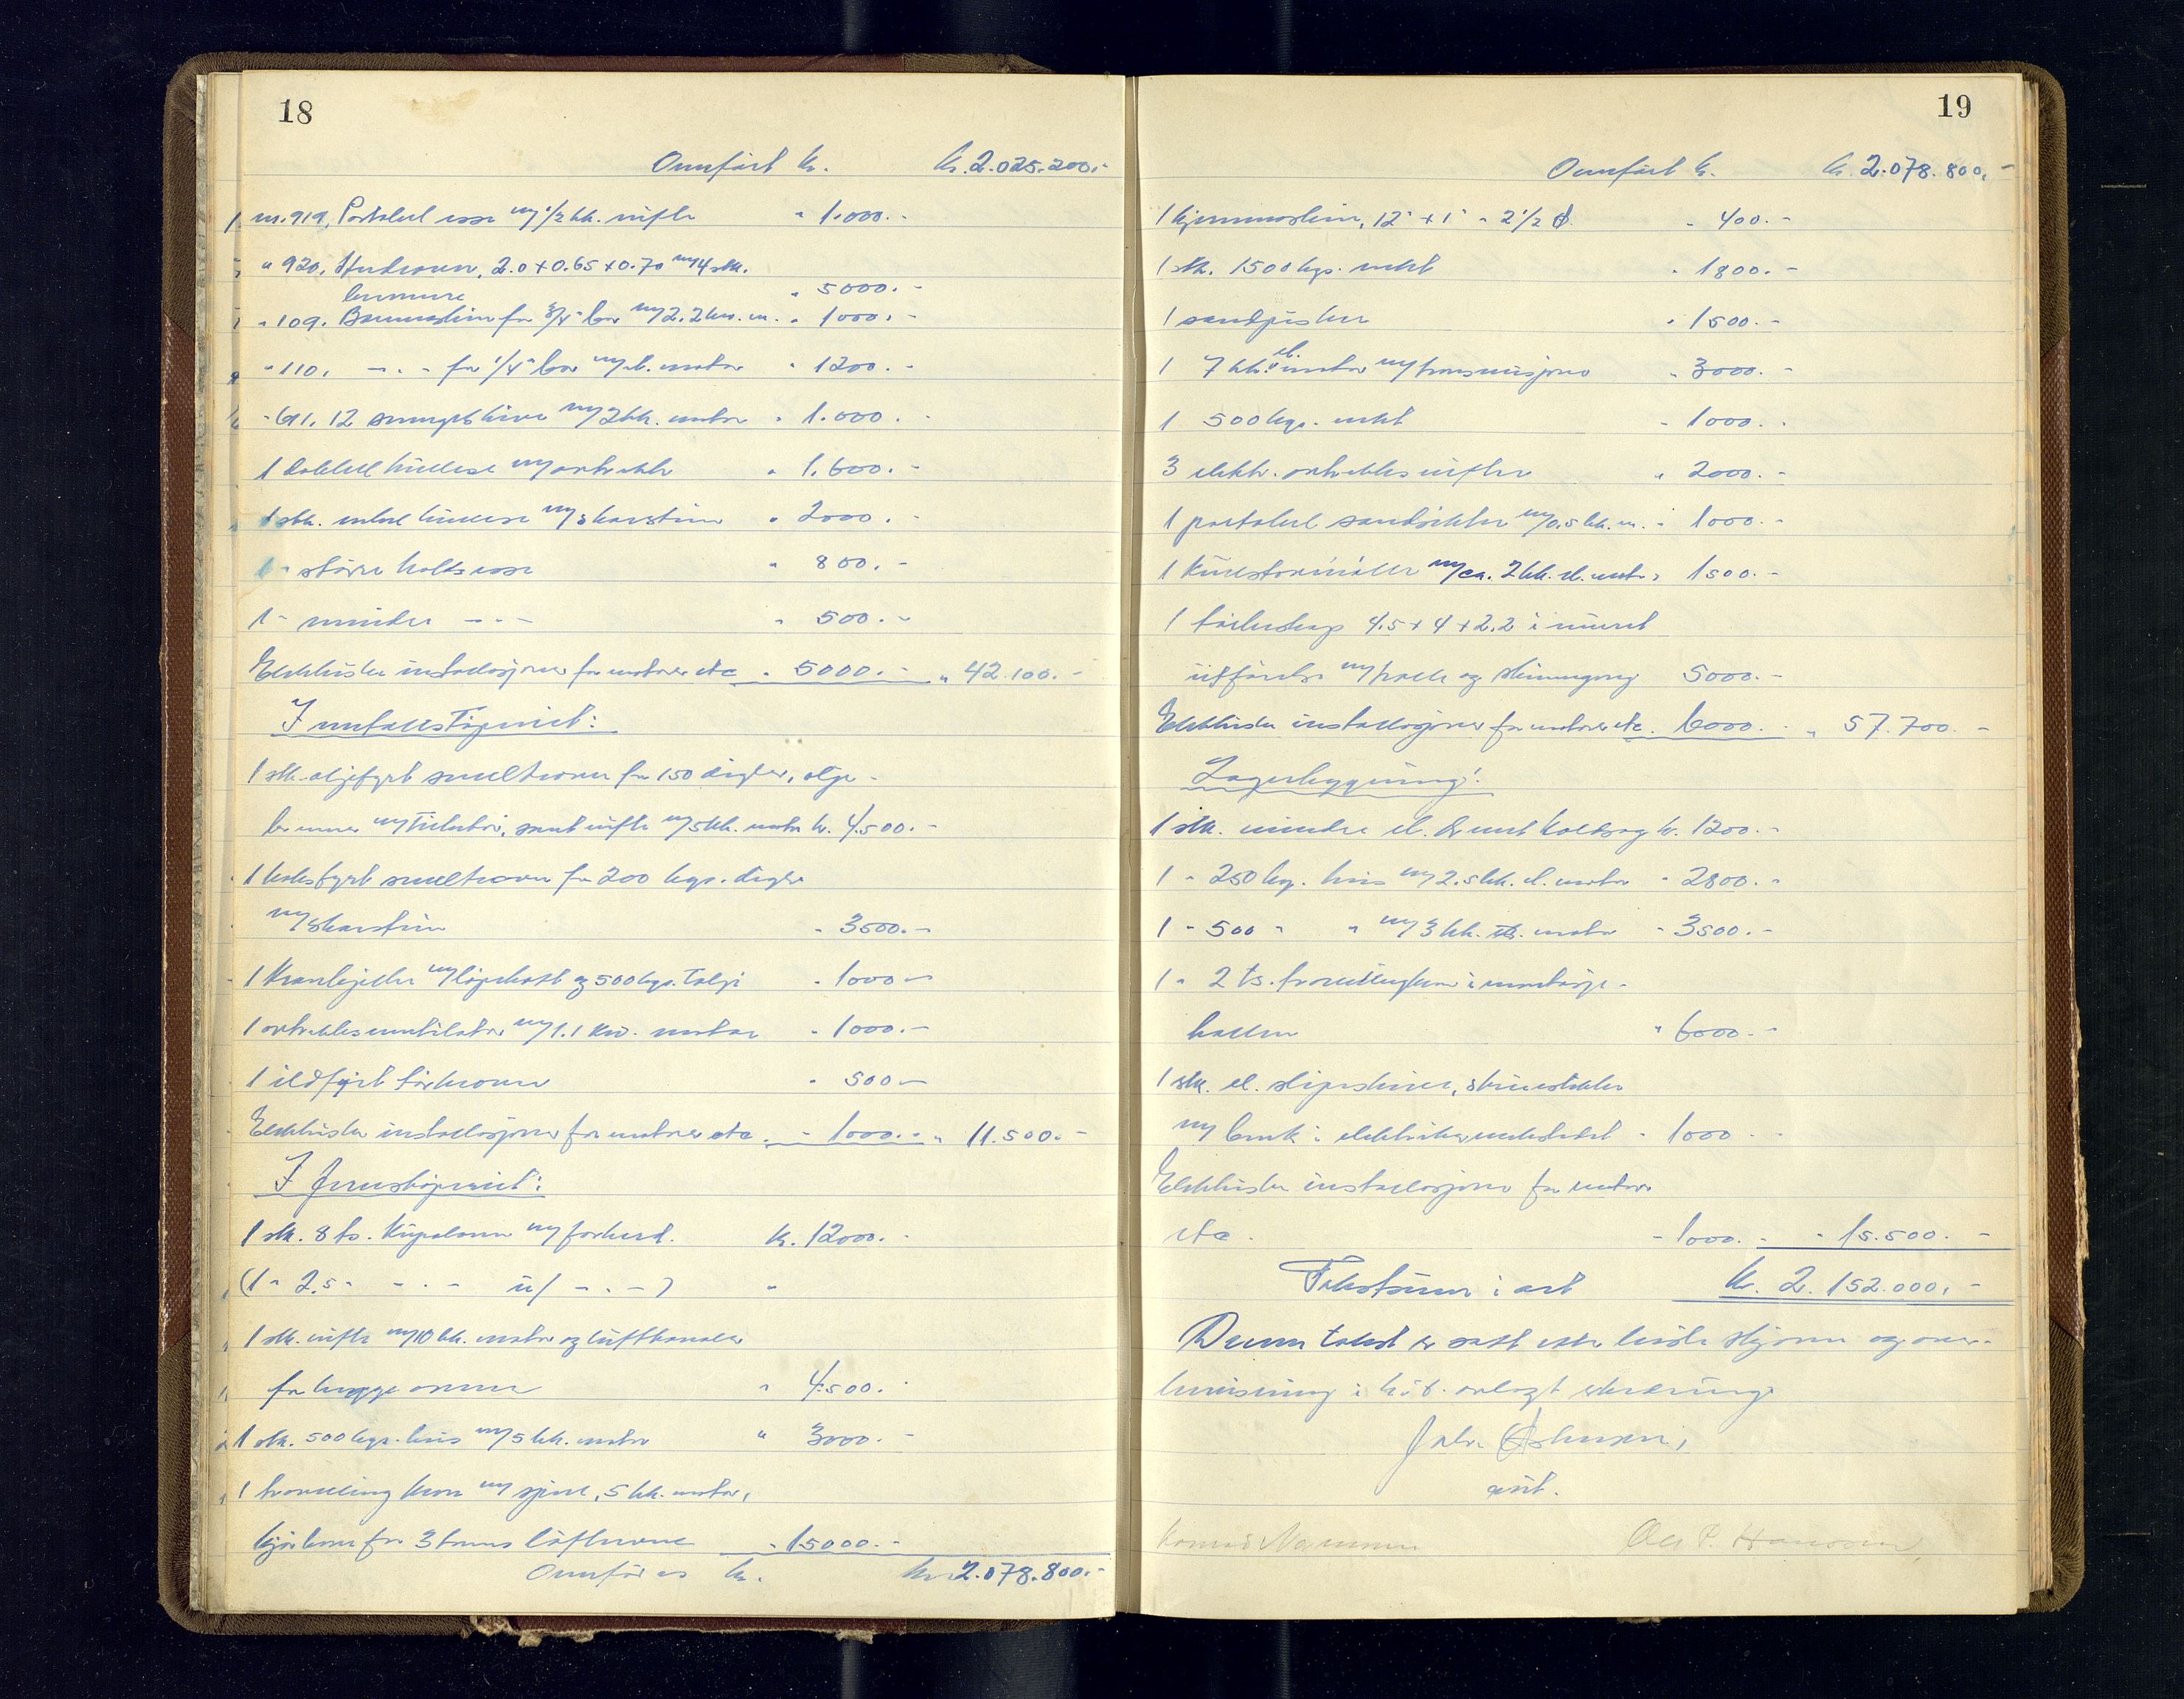 18
Overført kr. kr. 2.025.200.-
nr. 919, Portabel esse m/ 1/2 hk. vifte " 1.000.-
" 920, Herdeovn, 2.0 x 0.65 x 0.70 m/ 4 stk.
brennere " 5000.-
" 109. Boremaskin for 3/4" bor m/ 2.2 kw. m. " 1000.-
" 110. - " - for 1/4" bor m/ el. motor " 1200.-
" 611. 12 smergelskive m/ 2 hk. motor " 1.000.-
1 dobbelt m/ avtrekk " 1.600.-
1 stk. enkel m/ skorstein " 2000.-
1 " større koksesse " 800.-
1 " mindre - " - " 500.-
Elektriske installasjoner for motorer etc " 5000.- " 42.100.-
I metallstøperiet:
1 stk. oljefyrt smelteovn for 150 digler, olje-
brenner m/ tilbehør, samt vifte m/ 5 hk. motor kr. 4.500.-
1 koksfyrt smelteovn for 200 kgs. digler
m/ skorstein " 3500.-
1 kranbjelke m/ løpekatt og 500 kgs. talje " 1000.-
1 avtrekksventilator m/ 1.1 kw. motor " 1000.-
1 ildfyrt tørkeovn " 500.-
Elektriske installasjoner for motorer etc. " 1000.- " 11.500.-
I jernstøperiet:
1 stk. 8 ts. kupolovn m/ forherd. kr. 12000.-
(1 " 2.5 " - " - u/ - " -) "
1 stk. vifte m/ 10 hk. motor og luftkanaler
for begge ovner " 4.500.-
1 stk. 500 kgs. heis m/ 5 hk. motor " 3000.-
1 travelling kran m/ spill, 5 hk. motor,
kjørbane for 3 tonns løfteevne " 15000.-
Overføres kr. kr. 2.078.800.-
19
Overført kr. kr. 2.078.800.-
1 kjernemaskin, 12" x 1" - 2 1/2 φ. " 400.-
1 stk. 1500 kgs. vekt " 1800.-
1 sandpisker " 1500.-
1 7 hk. el. motor m/ transmisjon " 3000.-
1 500 kgs. vekt " 1000.-
3 elektr. avtrekksvifter " 2000.-
1 portabel sandsikter m/ 0.5 hk. m. " 1000.-
1 m/ ca. 2 hk. el. motor " 1500.-
1 tørkeskap 4.5 x 4 x 2.2 i muret
utførelse m/ tralle og skinnegang 5000.-
Elektriske installasjoner for motorer etc. 6000.- " 57.700.-
Lagerbygning:
1 stk. mindre el. drevet kaldsag kr. 1200.-
1 " 250 kg. heis m/ 2.5 hk. el. motor " 2800.-
1 " 500 " " m/ 3 hk. el. motor " 3500.-
1 " 2 ts. travellingkran i montasje-
hallen " 6000.-
1 stk. el. slipeskive, skruestikke
m/ benk i elektrikerverkstedet " 1000.-
Elektriske installasjoner for motorer
etc. " 1000.- " 15.500.-
Takstsum i alt kr. 2.152.000.-
Denne takst er satt etter beste skjønn og over-
bevisning i h.t. avlagt erklæring.
Ole P. Hansen